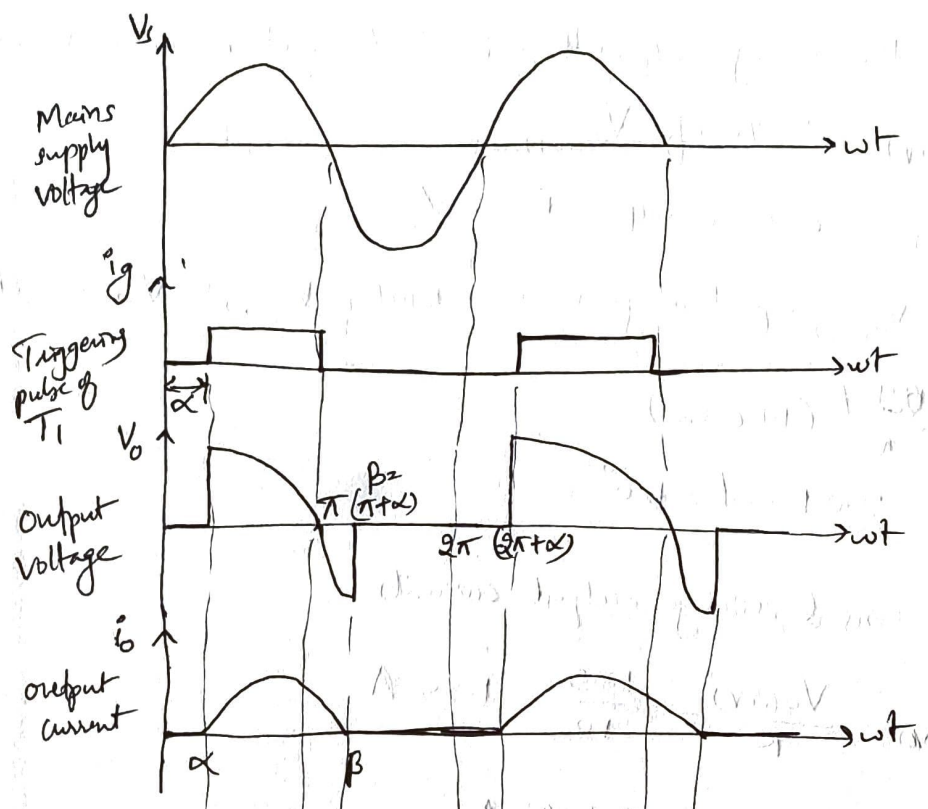 Vs
Mains
supply
voltage
ωt
ig
Triggering
pulse of
T1
α
ωt
Vo
Output
voltage
β=
π (π+α)
2π (2π+α)
ωt
io
output
current
α
β
ωt